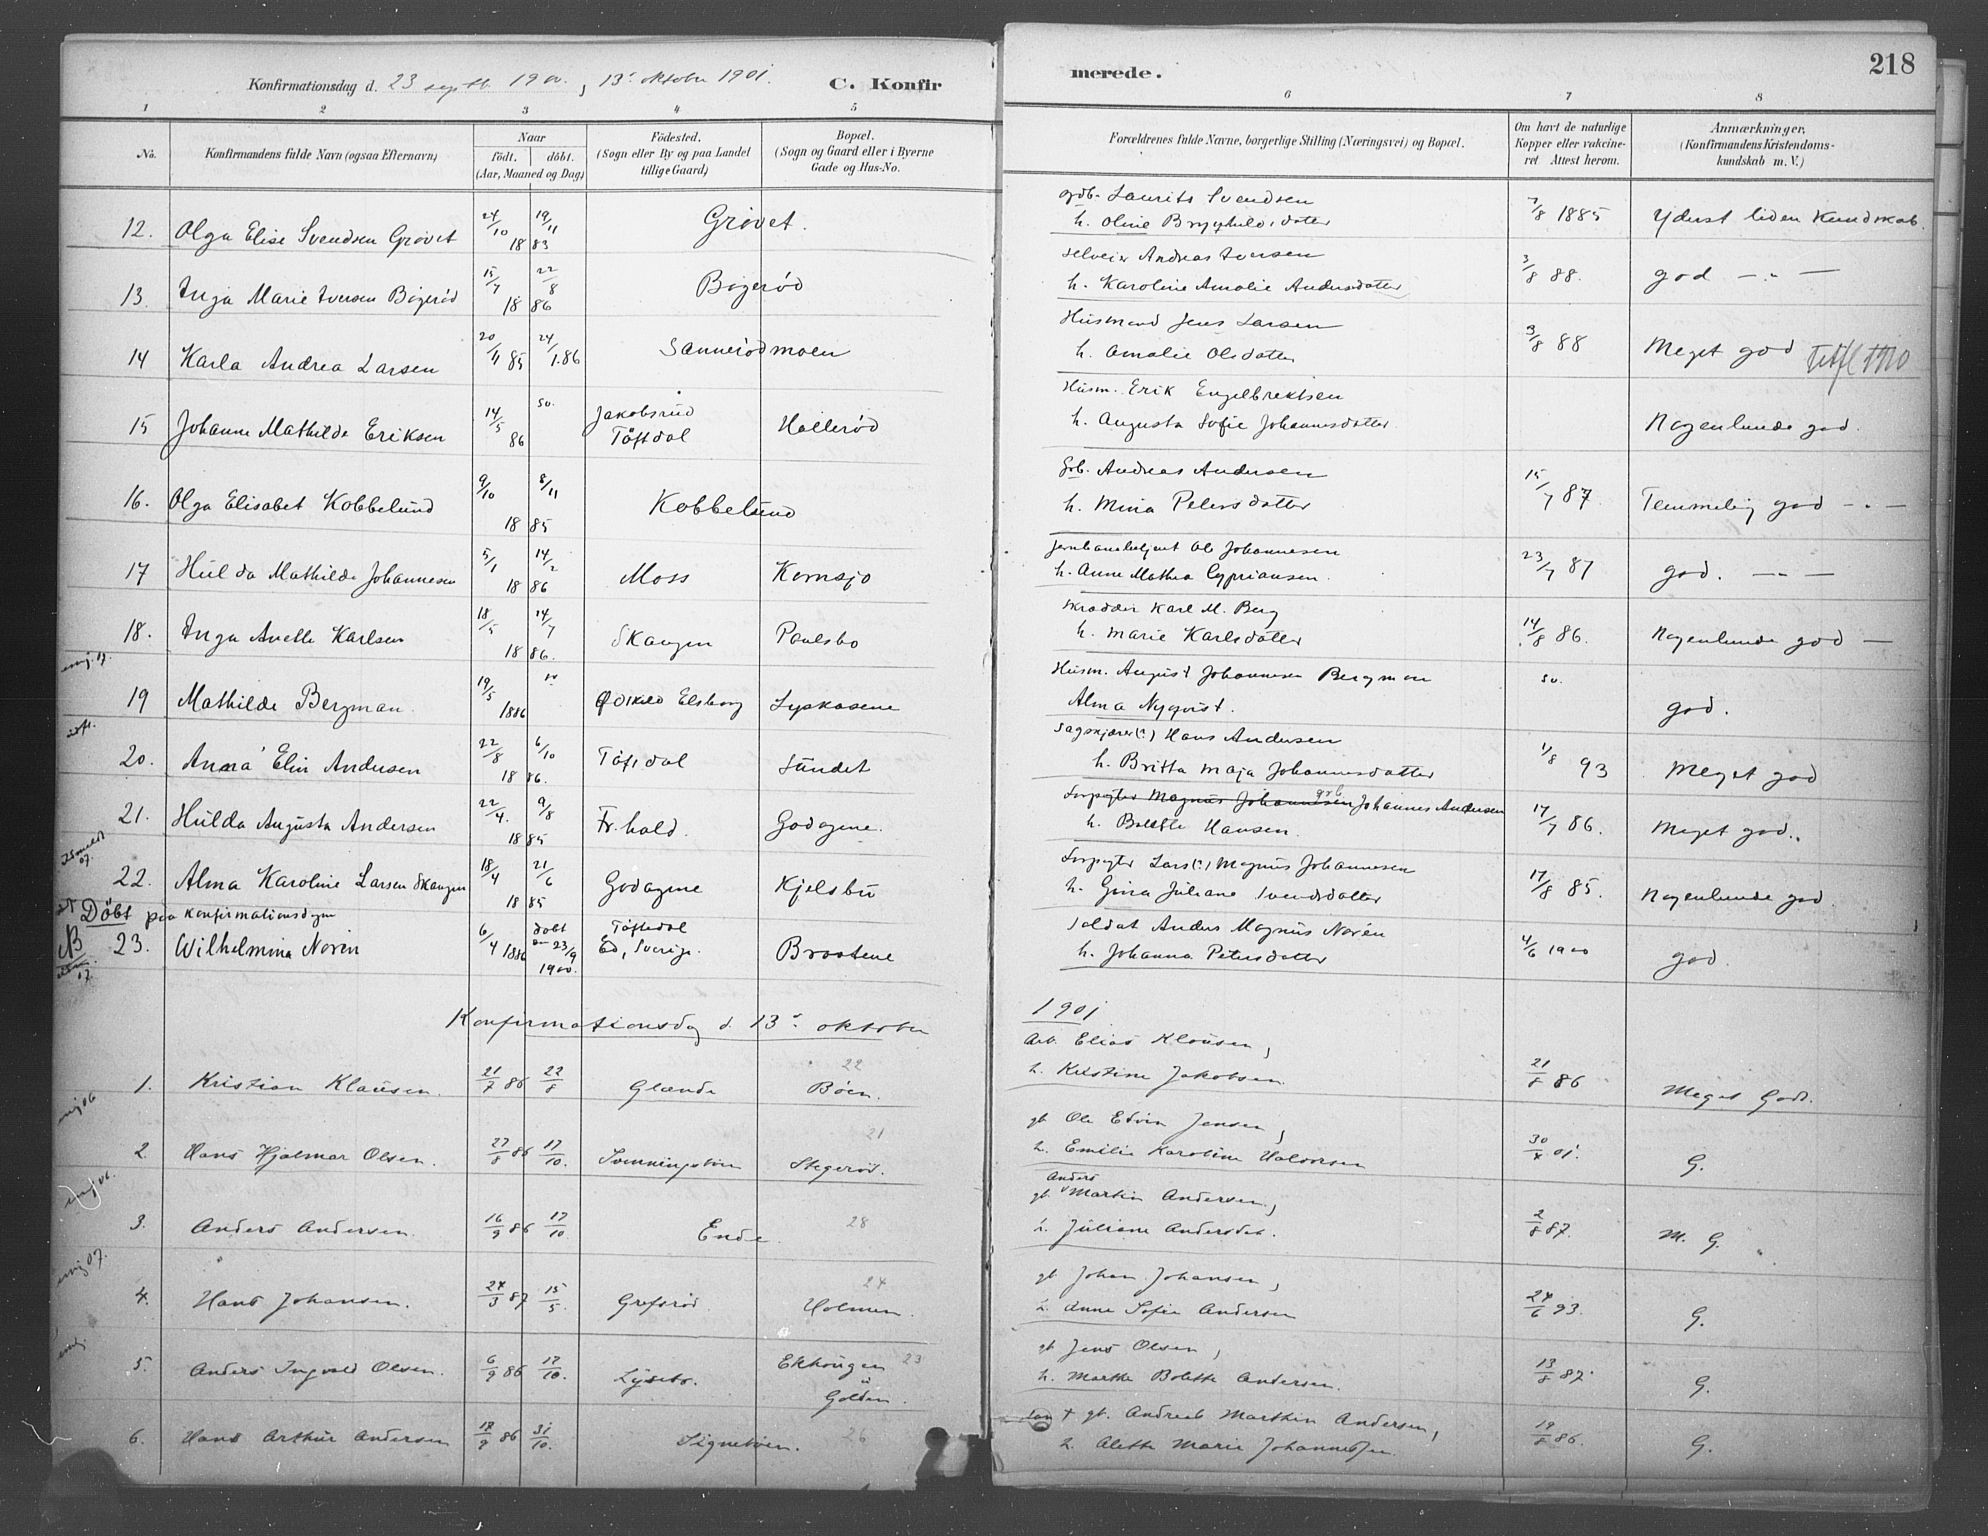 Konfirmationsdag d. 23 septb. 1900, 13. oktober 1901. C. Konfirmerede. 218
1 2 3 4 5 6 7 8
No.
Konfirmandens fulde Navn (ogsaa Efternavn)
Naar
født. døbt.
(Aar, Maaned og Dag)
Fødested.
(Sogn eller By og paa Landet
tillige Gaard)
Bopæl.
(Sogn og Gaard eller i Byerne
Gade og Hus-No.
Forældrenes fulde Navne, borgerlige Stilling (Næringsvei) og Bopæl.
Om havt de naturlige
Kopper eller vakcine-
ret Attest herom.
Anmærkninger,
(Konfirmandens Kristendoms-
kundskab m. V.)
12. Olga Elise Svendsen Grøvet 24/10 19/11 1883 Grøvet. gdb. Laurits Svendsen
h. Oline Brynhildsdatter 7/8 1885 Yderst liden Kundskab.
13. Inga Marie Iversen Bøgerød 15/7 22/8 1886 Bøgerød selveier Andreas Iversen
h. Karoline Amalie Andersdatter 3/8 88. god — " —
14 Karla Andrea Larsen 20/11 85 24/1.86 Sannerødmoen Husmand Jens Larsen
h. Amalie Olsdatter 3/8 88 Meget god
15 Johanne Mathilde Eriksen 14/5 86 sv. Jakobsrud
Töftdal Hallerød Husm. Erik Engelbrektsen
h. Augusta Sofie Johannesdatter Nogenlunde god.
16. Olga Elisabet Kobbelund 9/10 8/11 1885 Kobbelund Grb. Andreas Andersen
h. Mina Petersdatter 15/7 87 Temmelig god — " —
17 Hulda Mathilde Johannesen 5/1 14/2 1886 Moss Kornsjø Jernbanebetjent Ol. Johannesen
h. Anne Mathea Cypriansen. 23/7 87 god. — " —
18. Inga Anette Karlsen 18/5 14/7 1886. Skaugen Paulsbo Skrædder Karl M. Berg
h. Marie Karlsdatter 14/8 86. Nogenlunde god —
19 Mathilde Bergman. 19/5 1886 sv. Ødskild Elsborg Lyskasene Husm. August Johannesen Bergman
Alma Nyqvist. sv. god.
20. Anna Elin Andersen 22/8 6/10 1886. Töftdal Sundet Sagskjærer(?) Hans Andersen
h. Britta Maja Johannesdatter 1/8 93 Meget god
21. Hulda Augusta Andersen 22/4. 9/8 1885 Fr.hald. Godagene. Forpagter Magnus Johannesen grb Johannes Andersen
h. Bolette Hansen. 17/7 86. Meget god.
22. Alma Karoline Larsen Skaugen 18/4 21/6 1885 Godagene Kjelsbu Forpagter Lars(?) Magnus Johannesen
h. Gina Juliane Svendsdatter 17/8 85. Nogenlunde god
Döbt paa Konfirmationsdagen
NB 23. Wilhelmina Norén 6/4 1886 döbt
den 23/9
1900. Töftedal
Ed, Sverige. Braatene Soldat Anders Magnus Norén
h. Johanna Petersdatter 4/6 1900 god.
Konfirmationsdag d. 13. oktober 1901
1. Kristian Klausen. 21/7 86 22/8 Glænde Böen. 22 Arb. Elias Klausen,
h. Kristine Jakobsen. 21/8 86 Meget Godt.
2 Hans Hjalmar Olsen. 27/8 86 17/10. Svenningstøen Stegerød. 21 gb. Ole Edvin Jensen,
h. Emilie Karoline Halvorsen 30/4 01. G.
3. Anders Andersen. 16/9 86 17/10 Ende. 28 gb. Anders Martin Andersen,
h. Juliane Andersdat. 2/8 87. M. G.
4. Hans Johansen. 24/3 87 15/5. Grefsrød. Holmen. 24 gb. Johan Johansen,
h. Anne Sofie Andersen 24/6 93. G.
5. Anders Ingvald Olsen. 6/9 86 17/10. Lyseto. Ekhaugen
ü
Golden. 23 gb Jens Olsen,
h. Marthe Bolette Andersen. 13/8 87. G.
6. Hans Arthur Andersen 17/9 86 31/10. Signetøen. 26 + gb. Andreas Marthin Andersen,
h. Alette Marie Johannesen 19/8 86. G.